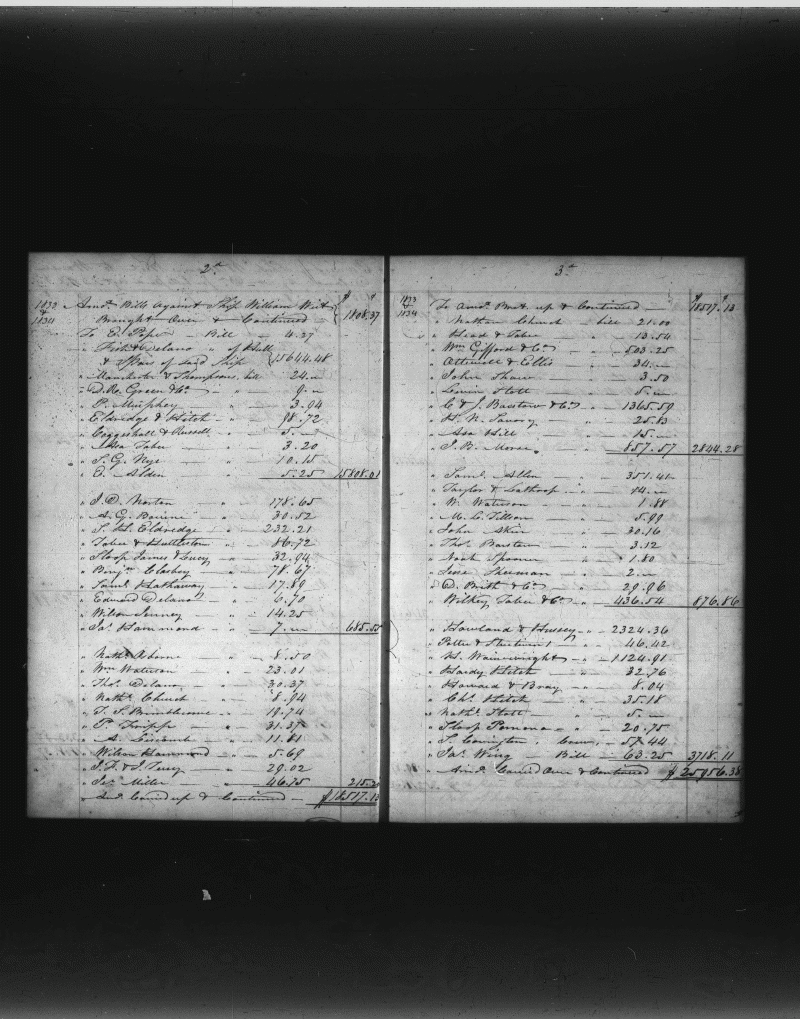 2d
1833 & 1834 Amot. Bills Against Ship William Wirt $
Brought Over & Continued 1808.37
To E. Pope Bill 4.27
" Fish & Delano of Hull
& Spars of said ship 15644.48
" Manchester & Thompsons bill 24.
" D. R. Green & Co. " 9.
" P. Murphey " 3.94
" Eldredge & Hitch " 98.72
" Coggeshall & Russell " 5.
" Asa Taber " 3.20
" S. G. Nye " 10.15
" E. Alden " 5.25 15808.01
" J. D. Norton " 178.65
" A. G. Bourne " 30.52
" S. H. Eldredge " 232.21
" Taber & " 86.72
" Sloop James & Lucy " 32.94
" Benjn. Clasbey " 78.67
" Saml. Hathaway " 17.89
" Edward Delano " 6.70
" Wilson Jenney " 14.25
" Jas. Hammond " 7. 685.55
" Nathl. " 8.50
" Wm. Watterson " 23.01
" Thos. Delano " 30.37
" Nathl. Church " 8.94
" T. S. " 19.74
" P. Tripp " 31.37
" A. " 11.81
" Wilson Hammond " 5.69
" J. F. & J. Terry " 29.02
" Jas. Miller " 46.75 215.20
" Amt. Carried up & Continued $18517.13
3d
1833 & 1834 To Amot. Brot. up & Continued $18517.13
" Nathan Church bill 21.00
" Head & Taber " 13.54
" Wm. Gifford & Co. " 503.25
" Attwell & Ellis " 34.
" John Shaw " 3.50
" Lewis Stott " 5.
" C & J. Barstow & Co. " 1365.59
" H. N. " 25.83
" Asa Hill " 15.
" J. B. Morse " 857.57 2844.28
" Saml. Allen " 351.41
" Taylor & Lathrop " 14.
" W. Watterson " 1.88
" M. C. Tillson " 5.99
" John Akin " 30.16
" Thos. Barstow " 3.12
" Noah Spooner " 1.80
" Jesse Sherman " 2.
" D. Brith & Co. " 29.96
" Wilkey Taber & Co. " 436.54 876.86
" Howland & Hussey " 2324.36
" Potter & " 46.42
" H. Wainwright " 1124.91
" Hardy Hitch " 32.76
" Howard & Bray " 8.04
" Chs. Hitch " 35.18
" Nathl. Stott " 5.
" Sloop Pomona " 20.75
" S. Covington, " 57.44
" Jas. Wing Bill 63.25 3718.11
" Amt. Carried Over & Continued $25956.38